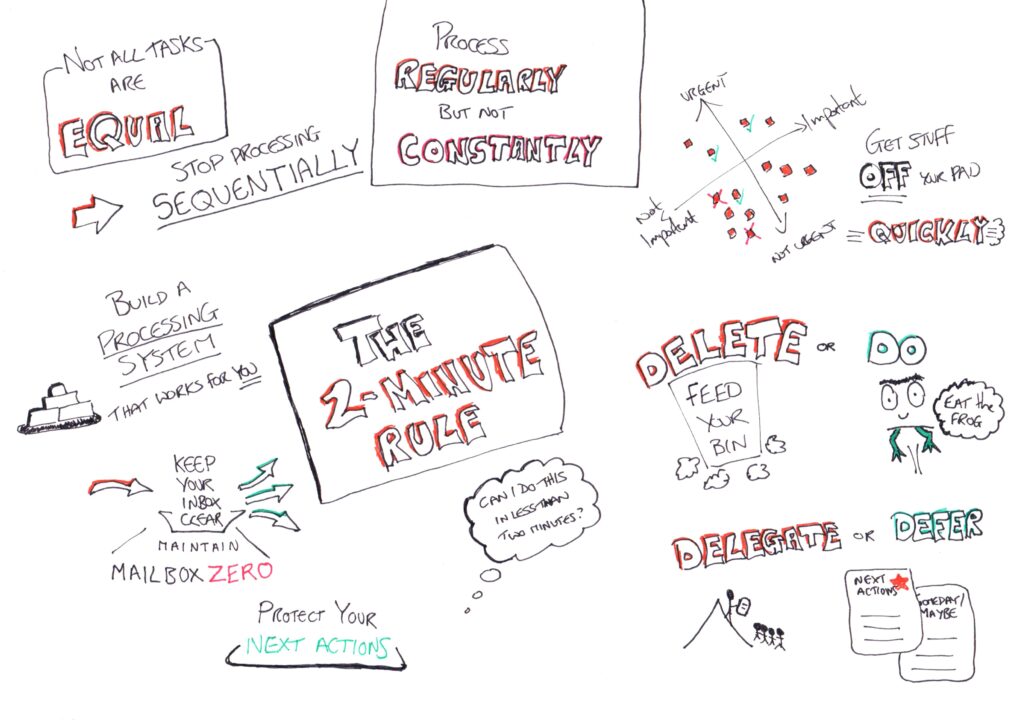 NOT ALL TASKS
ARE
EQUAL
STOP PROCESSING
SEQUENTIALLY
PROCESS
REGULARLY
BUT NOT
CONSTANTLY
URGENT
Important
Not
Important
NOT URGENT
GET STUFF
OFF YOUR PAD
QUICKLY
BUILD A
PROCESSING
SYSTEM
THAT WORKS FOR YOU
THE
2-MINUTE
RULE
DELETE OR DO
FEED
YOUR
BIN
EAT the
FROG
KEEP
YOUR
INBOX
CLEAR
MAINTAIN
MAILBOX ZERO
CAN I DO THIS
IN LESS THAN
TWO MINUTES?
DELEGATE OR DEFER
NEXT
ACTIONS
SOMEDAY/
MAYBE
PROTECT YOUR
NEXT ACTIONS